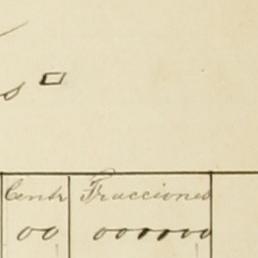 Cents Fracciones
00 000000